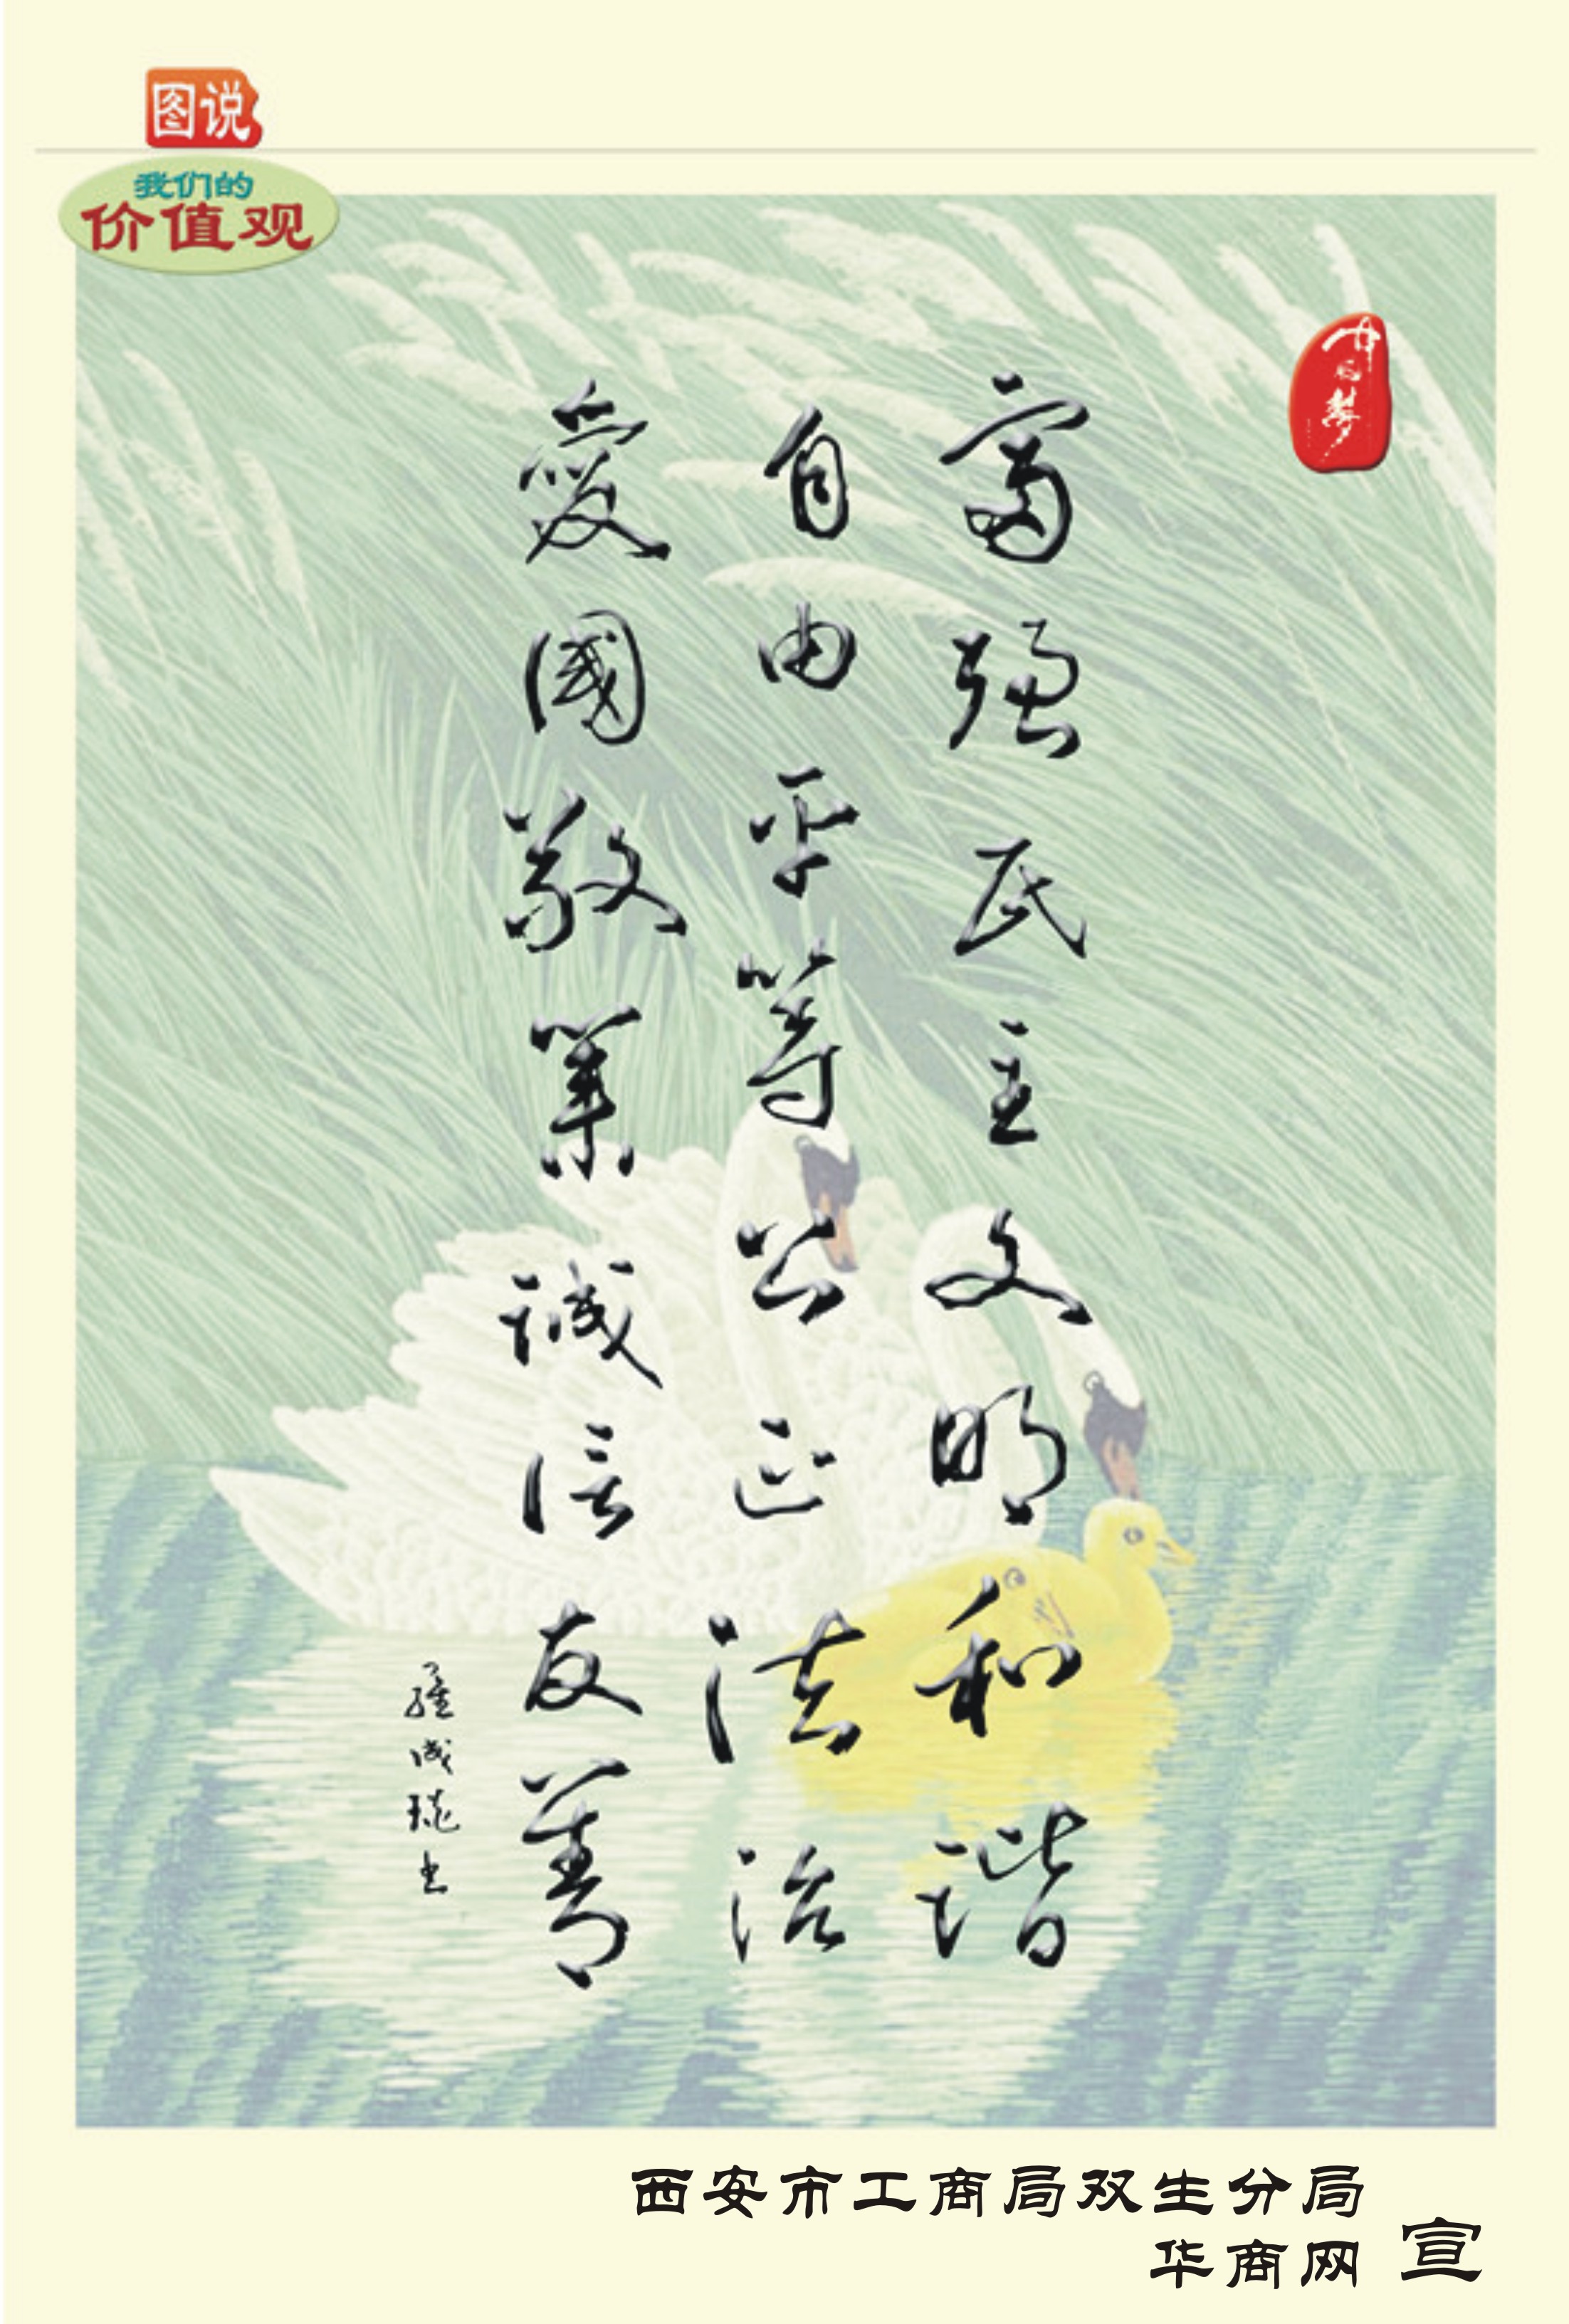 图说
我们的
价值观
中国梦
富强民主文明和谐
自由平等公正法治
愛國敬業誠信友善
西安市工商局双生分局
华商网
宣